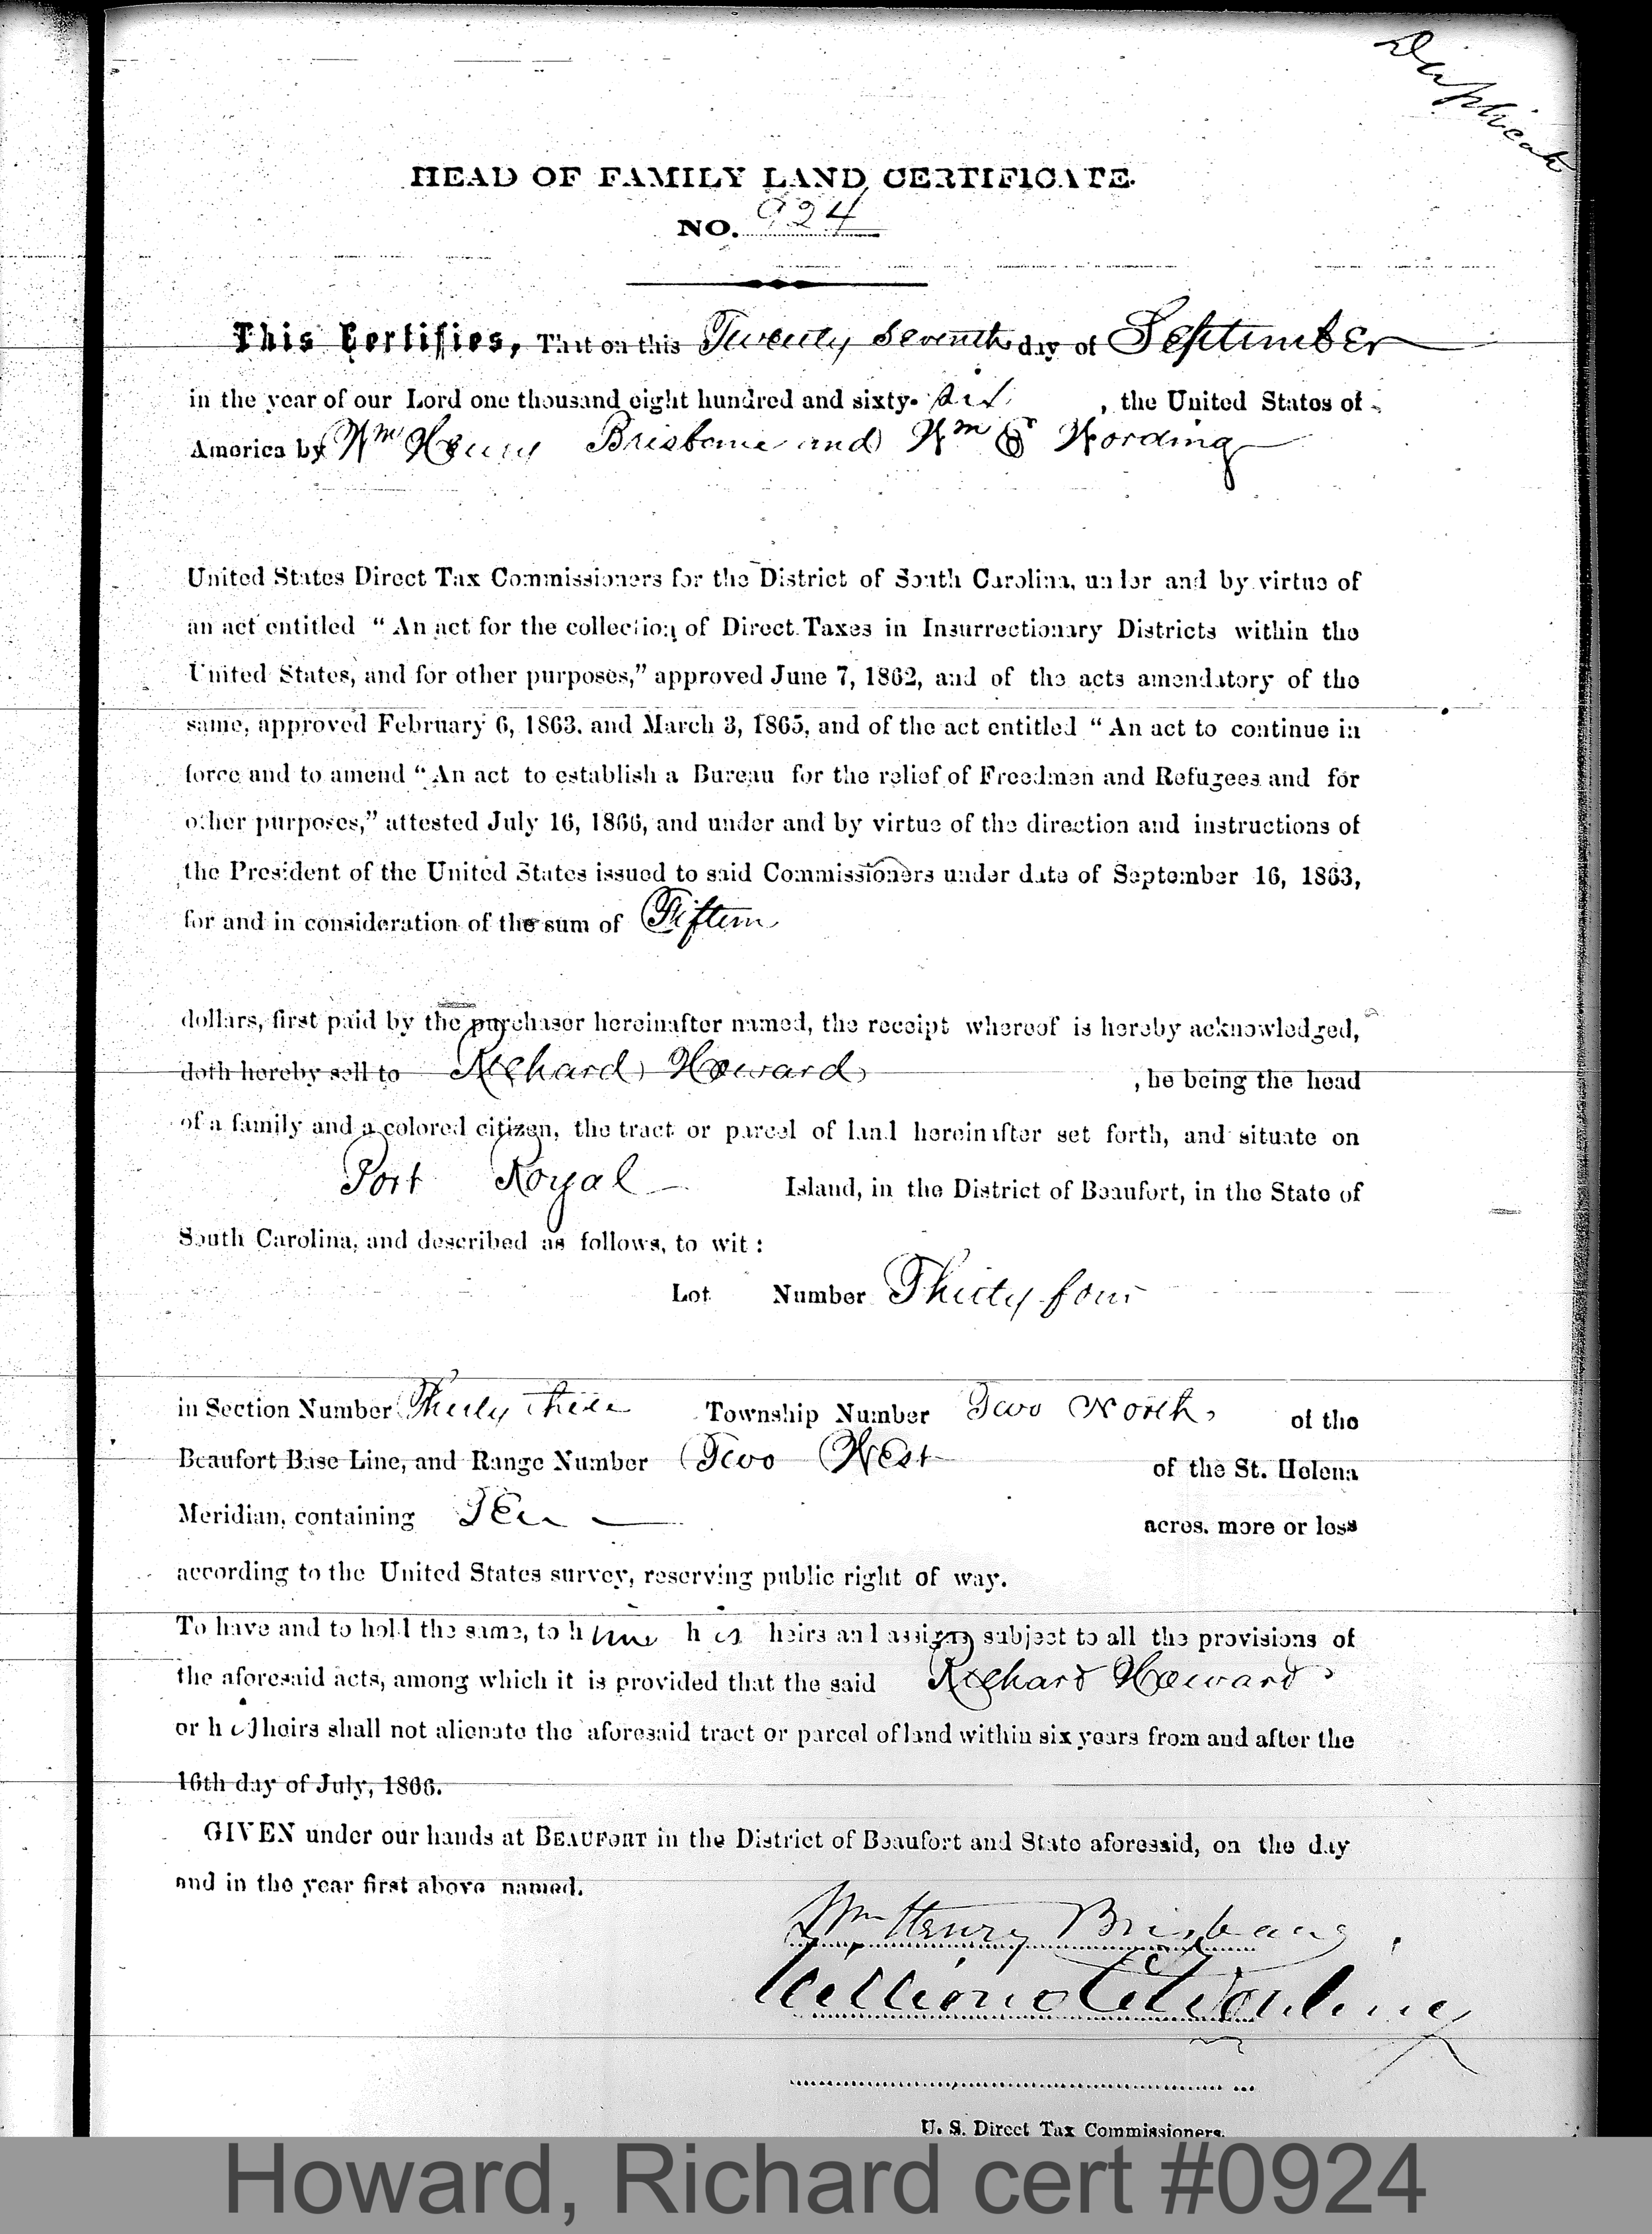 Duplicate
HEAD OF FAMILY LAND CERTIFICATE.
NO. 924
This Certifies, That on this Twenty Seventh day of September
in the year of our Lord one thousand eight hundred and sixty-six, the United States of
America by Wm Henry Brisbane and Wm E Wording
United States Direct Tax Commissioners for the District of South Carolina, under and by virtue of
an act entitled “An act for the collection of Direct Taxes in Insurrectionary Districts within the
United States, and for other purposes,” approved June 7, 1862, and of the acts amendatory of the
same, approved February 6, 1863, and March 3, 1865, and of the act entitled “An act to continue in
force and to amend “An act to establish a Bureau for the relief of Freedmen and Refugees and for
other purposes,” attested July 16, 1866, and under and by virtue of the direction and instructions of
the President of the United States issued to said Commissioners under date of September 16, 1863,
for and in consideration of the sum of Fifteen
dollars, first paid by the purchaser hereinafter named, the receipt whereof is hereby acknowledged,
doth hereby sell to Richard Howard, he being the head
of a family and a colored citizen, the tract or parcel of land hereinafter set forth, and situate on
Port Royal Island, in the District of Beaufort, in the State of
South Carolina, and described as follows, to wit:
Lot Number Thirty four
in Section Number Thirty three Township Number Two North, of the
Beaufort Base Line, and Range Number Two West of the St. Helena
Meridian, containing Ten acres, more or less
according to the United States survey, reserving public right of way.
To have and to hold the same, to him his heirs and assigns subject to all the provisions of
the aforesaid acts, among which it is provided that the said Richard Howard
or his heirs shall not alienate the aforesaid tract or parcel of land within six years from and after the
16th day of July, 1866.
GIVEN under our hands at BEAUFORT in the District of Beaufort and State aforesaid, on the day
and in the year first above named.
Wm Henry Brisbane
William E Wording
U. S. Direct Tax Commissioners.
Howard, Richard cert #0924